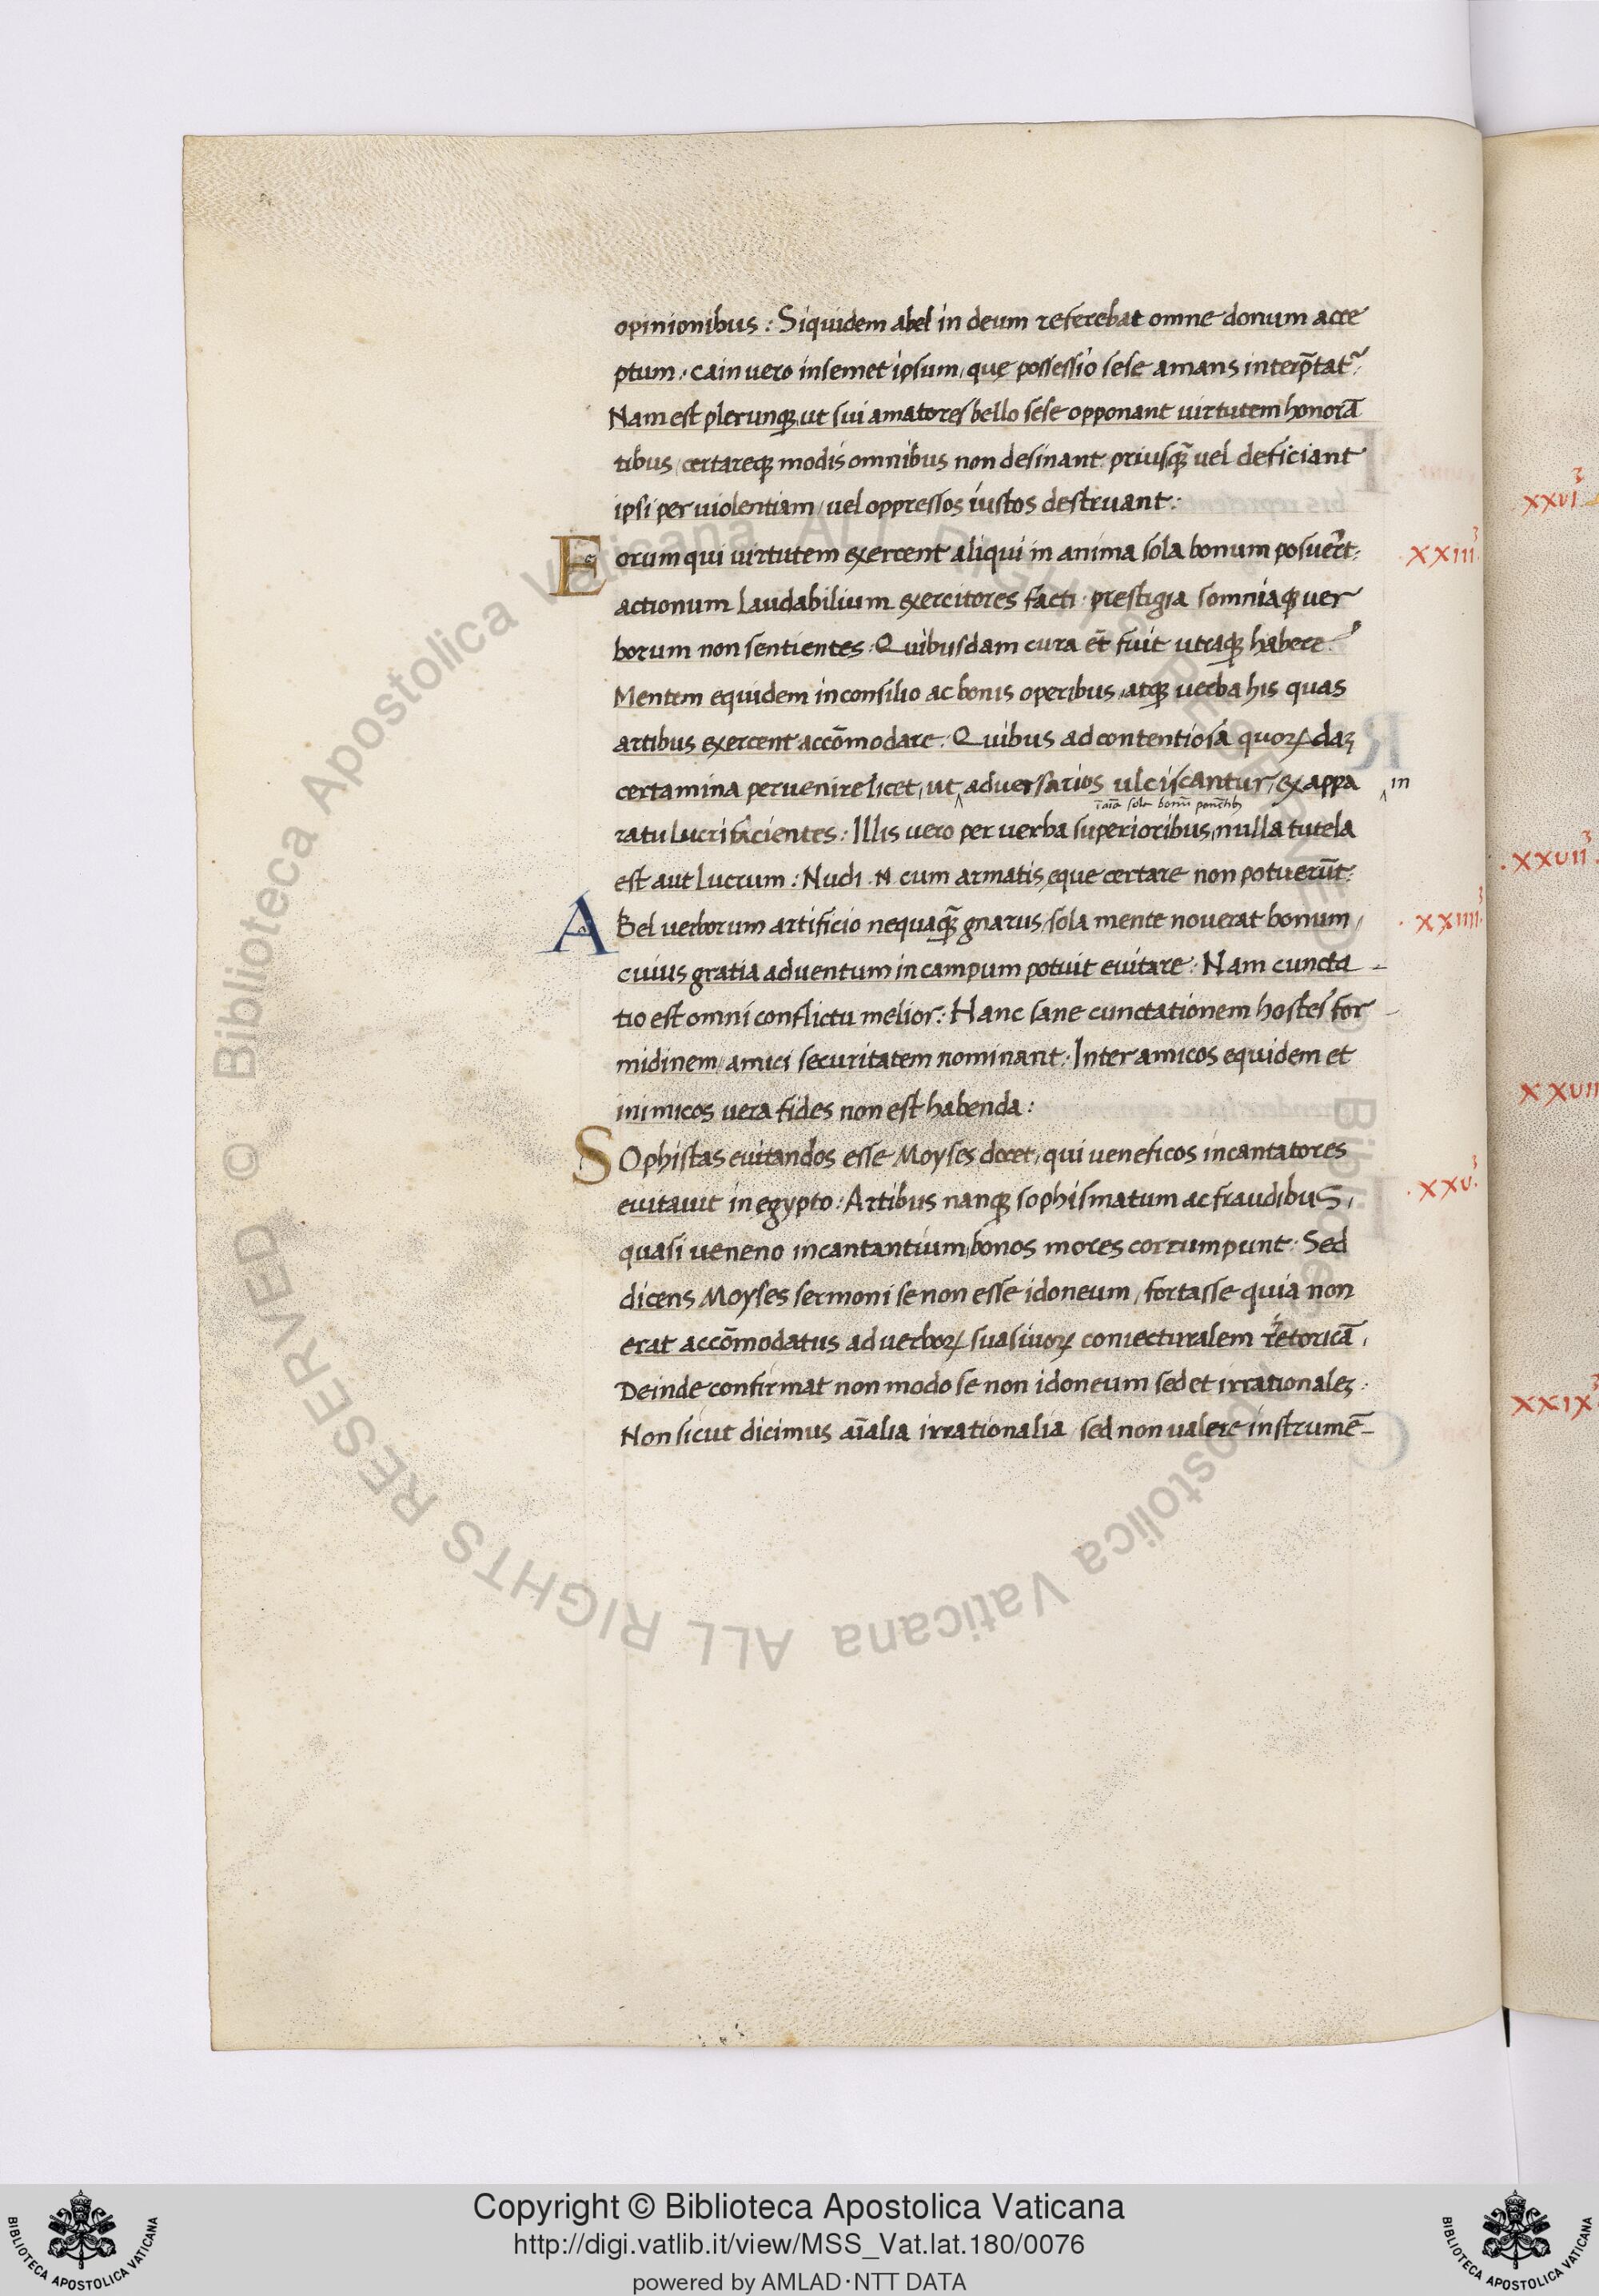 opinionibus : Siquidem abel in deum referebat omne donum acce
ptum . cain vero in semet ipsum , quę possessio sese amans interp̄tat᷑ :
Nam est plerunqꝫ ut sui amatores bello sese opponant virtutem honorā
tibus , certareqꝫ modis omnibus non desinant priusꝗ̄ vel deficiant
ipsi per violentiam , vel oppressos iustos destruant :
Eorum qui virtutem exercent aliqui in anima sola bonum posuer̄t : XXIII
actionum laudabilium exercitores facti . prestigia somniaqꝫ ver
borum non sentientes . Quibusdam cura et̄ fuit utraqꝫ habere .
Mentem equidem in consilio ac bonis operibus , atqꝫ verba his quas
artibus exercent accōmodare . Quibus ad contentiosa quoꝝdaꝫ
certamina pervenire licet , ut adversarios ulciscantur , ex appa in
īaīa sola bonū ponētib
ratu lucri facientes : Illis vero per verba superioribus , nulla tutela
est aut lucrum : Nudi .N. cum armatis ęque certare non potuerūt :
ABel verborum artificio nequaꝗ̄ gnarus , sola mente noverat bonum , XXIIII
cuius gratia adventum in campum potuit evitare : Nam cuncta
tio est omni conflictu melior : Hanc sane cunctationem hostes for
midinem , amici securitatem nominant : Inter amicos equidem et
inimicos vera fides non est habenda :
SOphistas evitandos esse Moyses docet , qui veneficos incantatores XXV
evitavit in egypto : Artibus nanqꝫ sophismatum ac fraudibus ,
quasi veneno incantantium , bonos mores corrumpunt : Sed
dicens Moyses sermoni se non esse idoneum , fortasse quia non
erat accōmodatus ad verboꝝ suasivoꝝ coniecturalem retoricā ,
Deinde confirmat non modo se non idoneum sed et irrationaleꝫ :
Non sicut dicimus aīalia irrationalia sed non valere instrumē
XXVI
XXVII
XXVII
XXIX
© Biblioteca Apostolica Vaticana ALL RIGHTS RESERVED
© Biblioteca Apostolica Vaticana ALL RIGHTS RESERVED
Copyright © Biblioteca Apostolica Vaticana
http://digi.vatlib.it/view/MSS_Vat.lat.180/0076
powered by AMLAD·NTT DATA
BIBLIOTECA APOSTOLICA VATICANA
BIBLIOTECA APOSTOLICA VATICANA